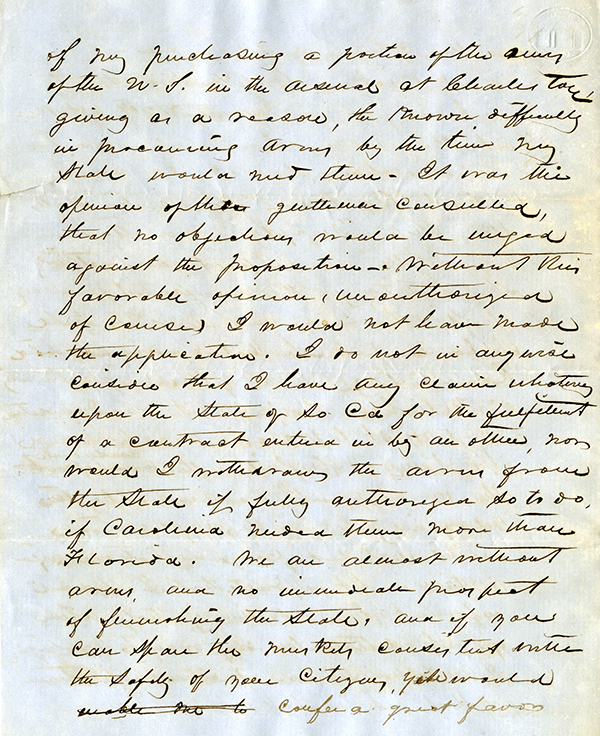 of my purchasing a portion of the arms
of the U. S. in the arsenal at Charleston,
giving as a reason, the known difficulty
in procuring Arms by the time my
State would need them - It was the
opinion of those gentlemen consulted,
that no objections would be urged
against the proposition - Without this
favorable opinion, (unauthorized
of course) I would not have made
the application. I do not in anywise
consider that I have any claim whatever
upon the State of So Ca for the fulfilment
of a contract entered in by an officer, nor
would I withdraw the arms from
the State if fully authorized so to do,
if Carolina needed them more than
Florida. We are almost without
arms, and no immediate prospect
of furnishing the State, and if you
can spare the muskets consistent with
the safety of your Citizens, would
enable me to confer a great favor